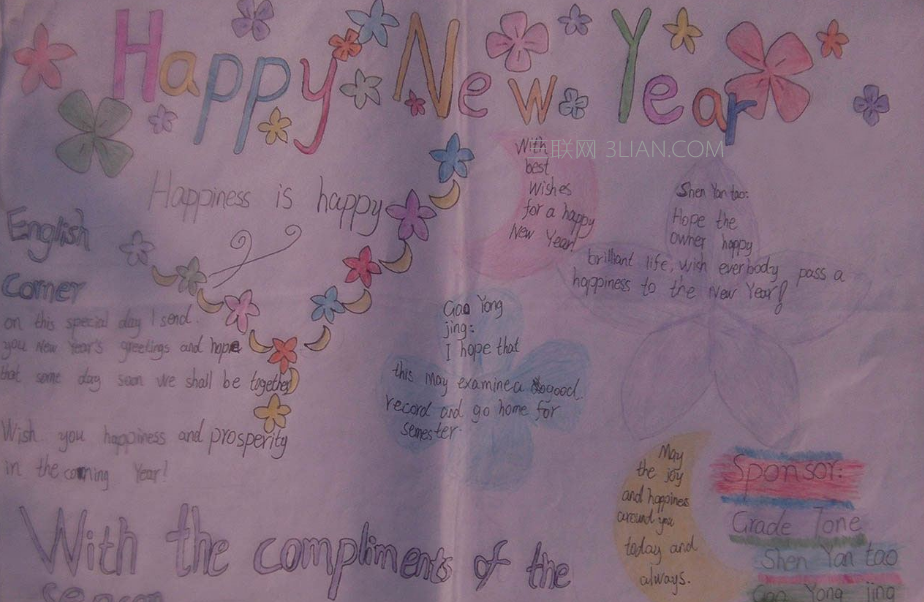 Happy New Year
三联网 3LIAN.COM
Happiness is happy
English
Corner
on this special day I send
you New Year's greetings and hope
that some day soon we shall be together
Wish you happiness and prosperity
in the coming Year!
With the compliments of the
season
With
best
wishes
for a happy
New Year!
Shen Yan tao:
Hope the
owner happy
brilliant life, wish everbody pass a
happiness to the New Year!
Gao Yong
jing:
I hope that
this may examine a good
record and go home for
semester.
May
the joy
and happiness
around you
today and
always.
Sponsor:
Grade Tone
Shen Yan tao
Gao Yong jing